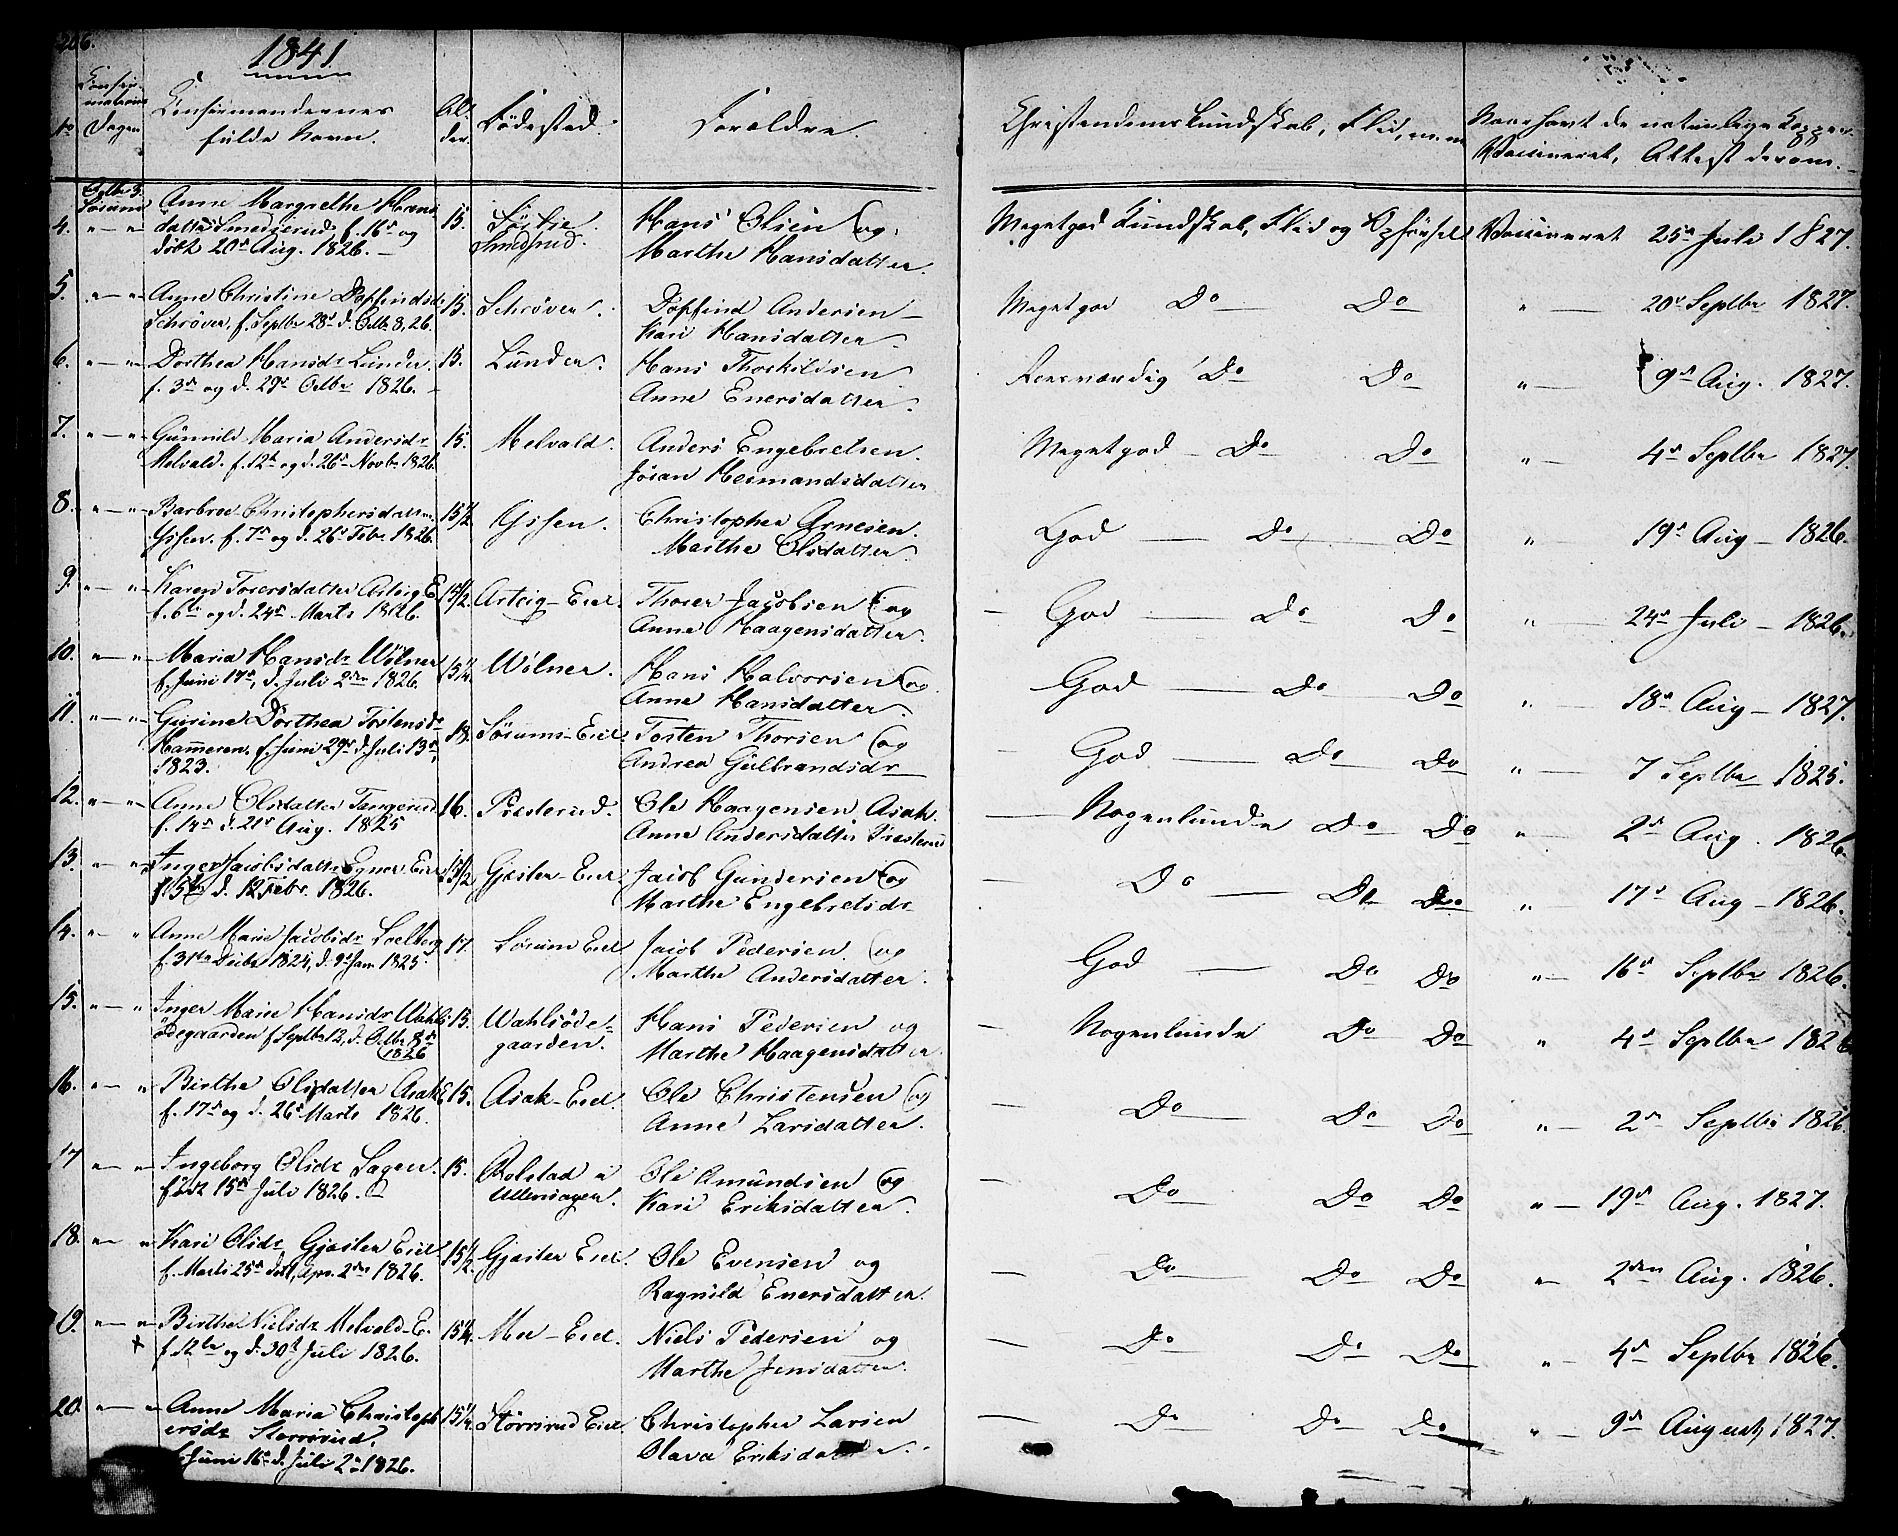 206.
1841.
No
Confirmations Dagen
Confirmandernes fulde Navn.
Alder.
Fødested.
Forældre.
Christendoms Kundskab, Flid, m. m
Naar havt de naturlige Kopper
Vaccineret, Attest derom.
Octbr 3.
Sørum
4. " — " Anne Margrethe Hans
datter Smedsrud. f. 16de og
døbt 20de Aug. 1826. —
15.
Hans Olsen og
Marthe Hansdatter.
Megetgod Kundskab, Flid og Opførsel
Vaccineret 25de Juli 1827.
5. " — " Anne Christine Dopfindsdr
Schrøver, f. Septbr 28de d. Octbr 8, 26.
15.
Schrøver.
Dopfind Andersen —
Kari Hansdatter.
Megetgod Do — Do
" — 20de Septbr 1827.
6. " — " Dorthea Hansdr Lunder.
f. 3de og d. 29de Octbr 1826. —
15.
Lunder.
Hans Thorkildsen
Anne Enersdatter.
Roesværdig Do Do
" — 9de Aug. 1827.
7. " — " Gunnild Maria Andersdr
Melvald. f. 12te og d. 26de Novbr 1826.
15.
Melvald.
Anders Engebretsen.
Jøran Hermandsdatter
Megetgod — Do Do
" — 4de Septbr 1827.
8. " — " Barbroe Christophersdatter
f. 7de og d. 26de Febr. 1826.
15 1/2
Christopher Arnesen.
Marthe Olsdatter.
God — Do — Do
" 19de Aug — 1826.
9. " — " Karen Toresdatter Asteig E.
f. 6te og d. 24de Marts 1826.
15 1/2.
Asteig — Eiel.
Thorer Jacobsen og
Anne Haagensdatter.
— God — Do Do
" — 24de Juli — 1826.
10. " — " Maria Hansdr Wølner
f. Juni 17de, d. Juli 2den 1826.
15 1/4.
Wølner.
Hans Halvorsen og
Anne Hansdatter.
God — Do Do
" — 18de Aug — 1827.
11. " — " Gurine Dorthea Tostensdr
Hammeren, f. Juni 29de d. Juli 13de,
1823.
18.
Sørums — Eiel.
Tosten Thorsen og
Andrea Gulbrandsdr
— God — Do Do
" — 7 Septbr 1825.
12. " — " Anne Olsdatter Tangerud
f. 14de d. 21de Aug. 1825
16.
Præsterud.
Ole Haagensen Asak.
Anne Andersdatter Præsterud
— Nogenlunde Do — Do
" — 2de Aug. 1826.
13. " — " Inger Jacobsdatter Egner Eiel
f. 5te d. 12 Febr. 1826.
15 1/2
Gjester — Eiel.
Jacob Gundersen og
Marthe Engebretsdr
— Do — Do Do
" 17de Aug — 1826.
14. " — " Anne Marie Jacobsdr Soelberg
f. 31te Decbr 1824, d. 9de Jan 1825.
17.
Sørum Eiel
Jacob Pedersen og
Marthe Andersdatter.
God — Do Do
" — 16de Septbr 1826.
15. " — " Inger Marie Hansdr Wahls
ødegaarden f. Septbr 12, d. Octbr 8de
1826
15.
Wahlsøde-
gaarden.
Hans Pedersen og
Marthe Haagensdatter.
— Nogenlunde Do Do
" 4de Septbr 1826
16. " — " Birthe Olsdatter Asak E.
f. 17de og d. 26de Marts 1826.
15.
Asak — Eiel.
Ole Christensen og
Anne Larsdatter.
— Do — Do Do
" — 2de Septbr 1826.
17 " — " Ingeborg Olsdr Sagen.
født 15de Juli 1826.
15.
Rolstad i
Ullensager.
Ole Amundsen og
Kari Eriksdatter.
— Do — Do Do
" — 19de Aug. 1827.
18. " — " Kari Olsdr Gjester Eiel.
f. Marts 25de døbt, Apr. 2den 1826.
15 1/2
Gjester Eiel.
Ole Evensen og
Ragnild Enersdatter.
— Do — Do Do
" 2den Aug. 1826.
19. " — " Birthe Nielsdr Melvald — E.
+ f. 12te og d. 30te Juli 1826.
15 1/4.
Moe — Eiel.
Niels Pedersen og
Marthe Jensdatter.
— Do — Do — Do
" — 4de Septbr 1826.
20. " — " Anne Maria Christoph
ersdr Storrsrud.
f. Juni 16de d. Juli 2de 1826.
15 1/4
Størrsrud Eiel.
Christopher Larsen
Olava Eriksdatter.
— Do — Do — Do
" — 9de August, 1827.